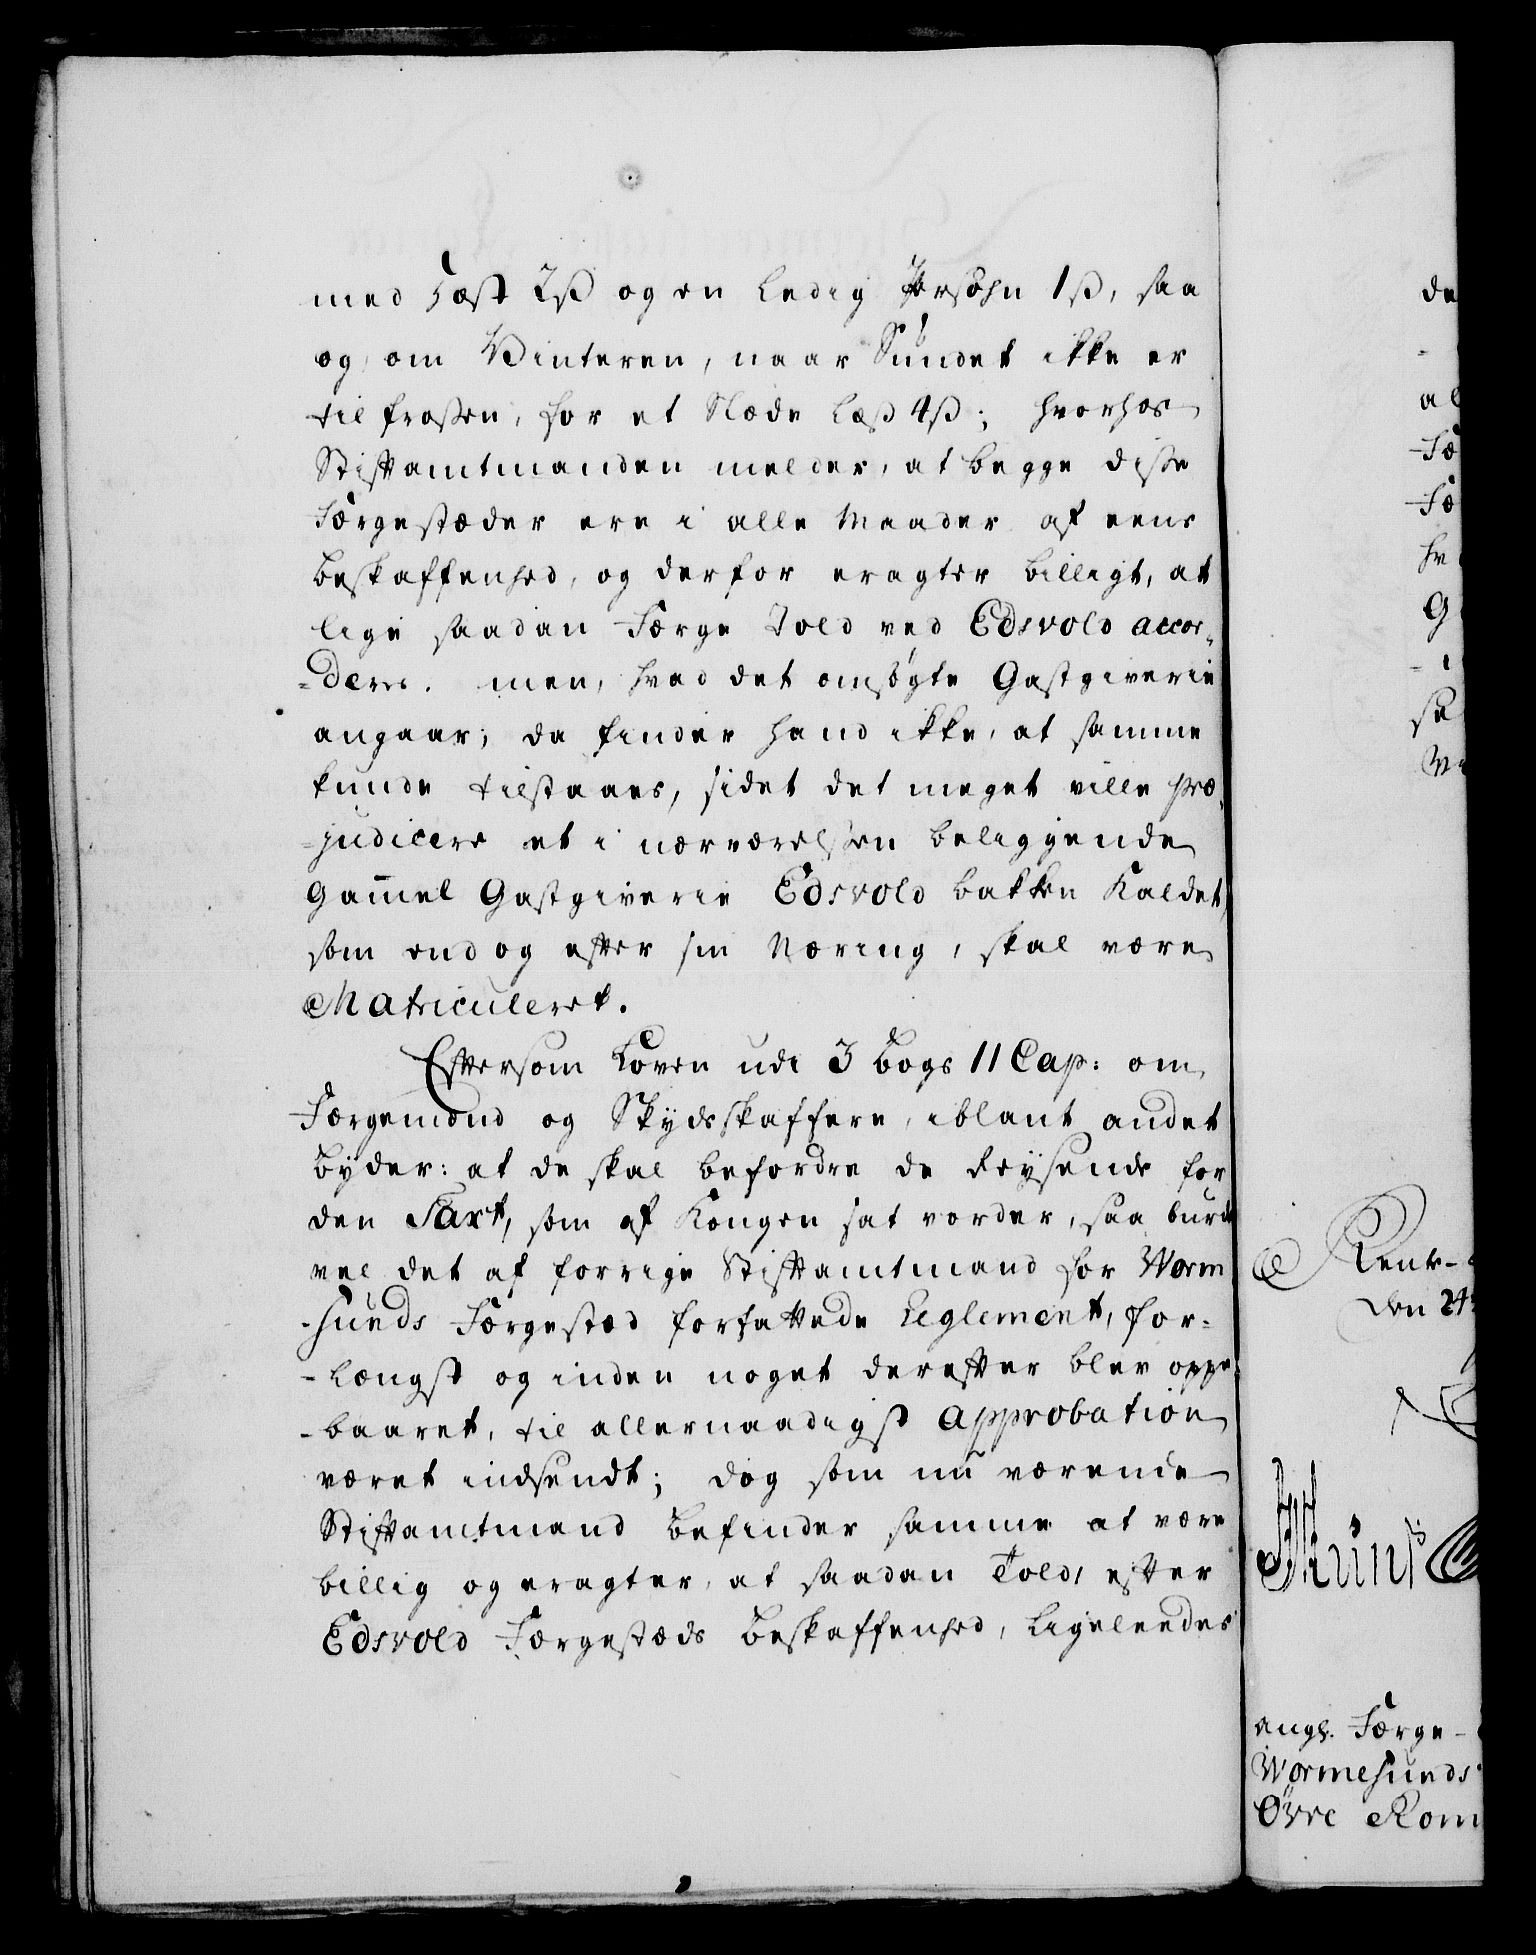 med Hest 2ß og en ledig Persohn 1ß, saa
og om Vinteren, naar Sundet ikke er
tilfrossen, for et Slæde Læs 4ß; hvorhos
Stiftamtmanden melder, at begge disse
Færgestæder ere i alle Maader af eens
beskaffenhed, og derfor eragter billigt, at
lige saadan Færge Told ved Edsvold accor-
-deres. men, hvad det omsøgte Gastgiverie
angaar; da finder hand ikke, at samme
kunde tilstaaes, sidet det meget ville præ-
-judicere et i nærværelsen beliggende
Gam̅el Gastgiverie Edsvold bakken Kaldet,
som endog efter sin Næring, skal være
Matriculeret.
Eftersom Loven udi 3 bogs 11 Cap: om
Færgemænd og Skydsskaffere, iblant andet
byder: at de skal befordre de Reysende for
den Taxt, som af Kongen sat vorder, saa burde
vel det af forrige Stiftamtmand for Worm-
-sunds Færgestæd forfattede Reglement, for-
-længst og inden noget derefter blev oppe-
-baaret, til allernaadigst Approbation
været indsendt; dog som nu værende
Stiftamtmand befinder samme at være
billig og eragter, at saadan Told, efter
Edsvold Færgestæds beskaffenhed, ligeleedes
de
al
-Fæ
-Fæ
hv
G
sa
Rente-
den 24
angl. Færge-
Wormesunds
Øvre Rom